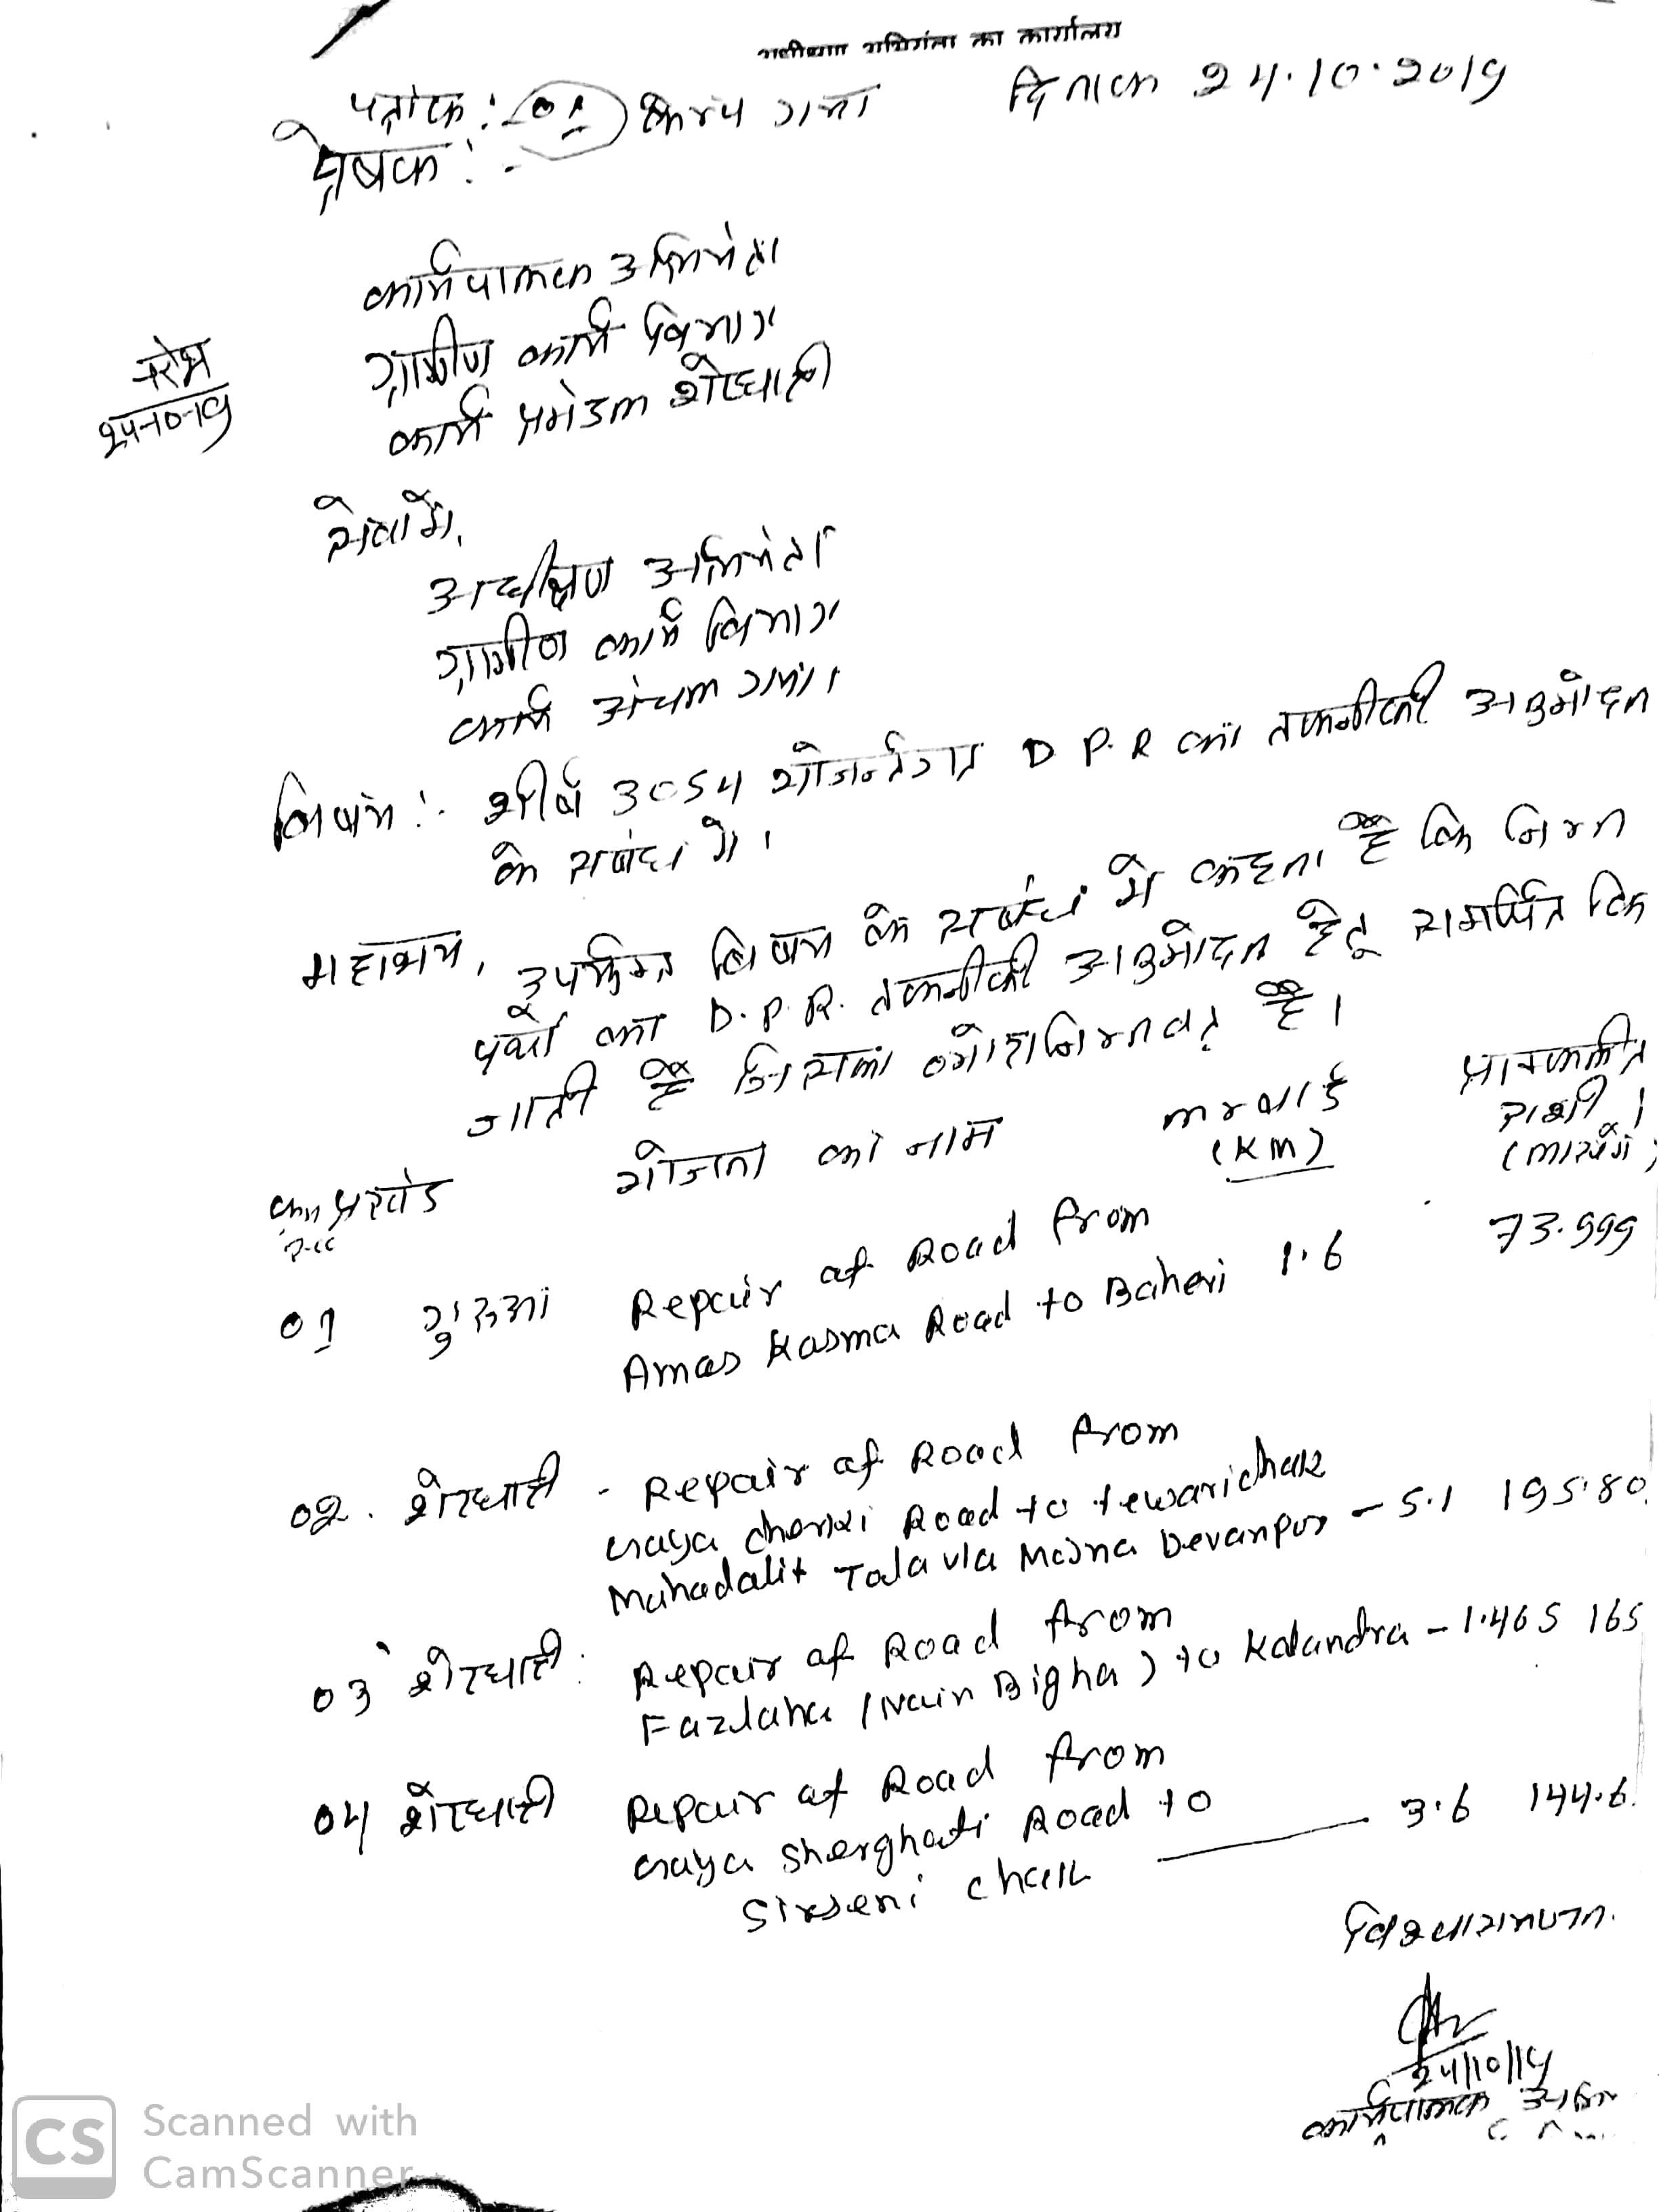 अधीक्षण अभियंता का कार्यालय
पत्रांक :- 01 कैम्प गया दिनांक 24.10.2019
प्रेषक :-
कार्यपालक अभियंता
ग्रामीण कार्य विभाग
कार्य प्रमंडल शेरघाटी
24-10-19
सेवा में,
अधीक्षण अभियंता
ग्रामीण कार्य विभाग
कार्य अंचल गया।
विषय :- शीर्ष 3054 योजनान्तर्गत D.P.R का तकनीकी अनुमोदन
के संबंध में।
महाशय,
उपर्युक्त विषय के संबंध में कहना है कि निम्न
पथों का D.P.R. तकनीकी अनुमोदन हेतु समर्पित कि
जाती है जिसका ब्योरा निम्नवत् है।
क्रम प्रखंड योजना का नाम लम्बाई (KM) प्राक्कलीत राशी (लाख में)
01 गुरुआ Repair of Road From
Amas Kasma Road to Baheri 1.6 73.999
02. शेरघाटी - Repair of Road From
Gaya Cherki Road to tewarichak
Mahadalit Tola via Mojna Devanpur - 5.1 195.80
03 शेरघाटी : Repair of Road from
Fazlaha (Nain Bigha) to Kalandra - 1.465 165
04 शेरघाटी Repair of Road from
Gaya Sherghati Road to
Sirseni chak 3.6 144.6
विश्वासभाजन
24/10/19
कार्यपालक अभि
CS Scanned with
CamScanner